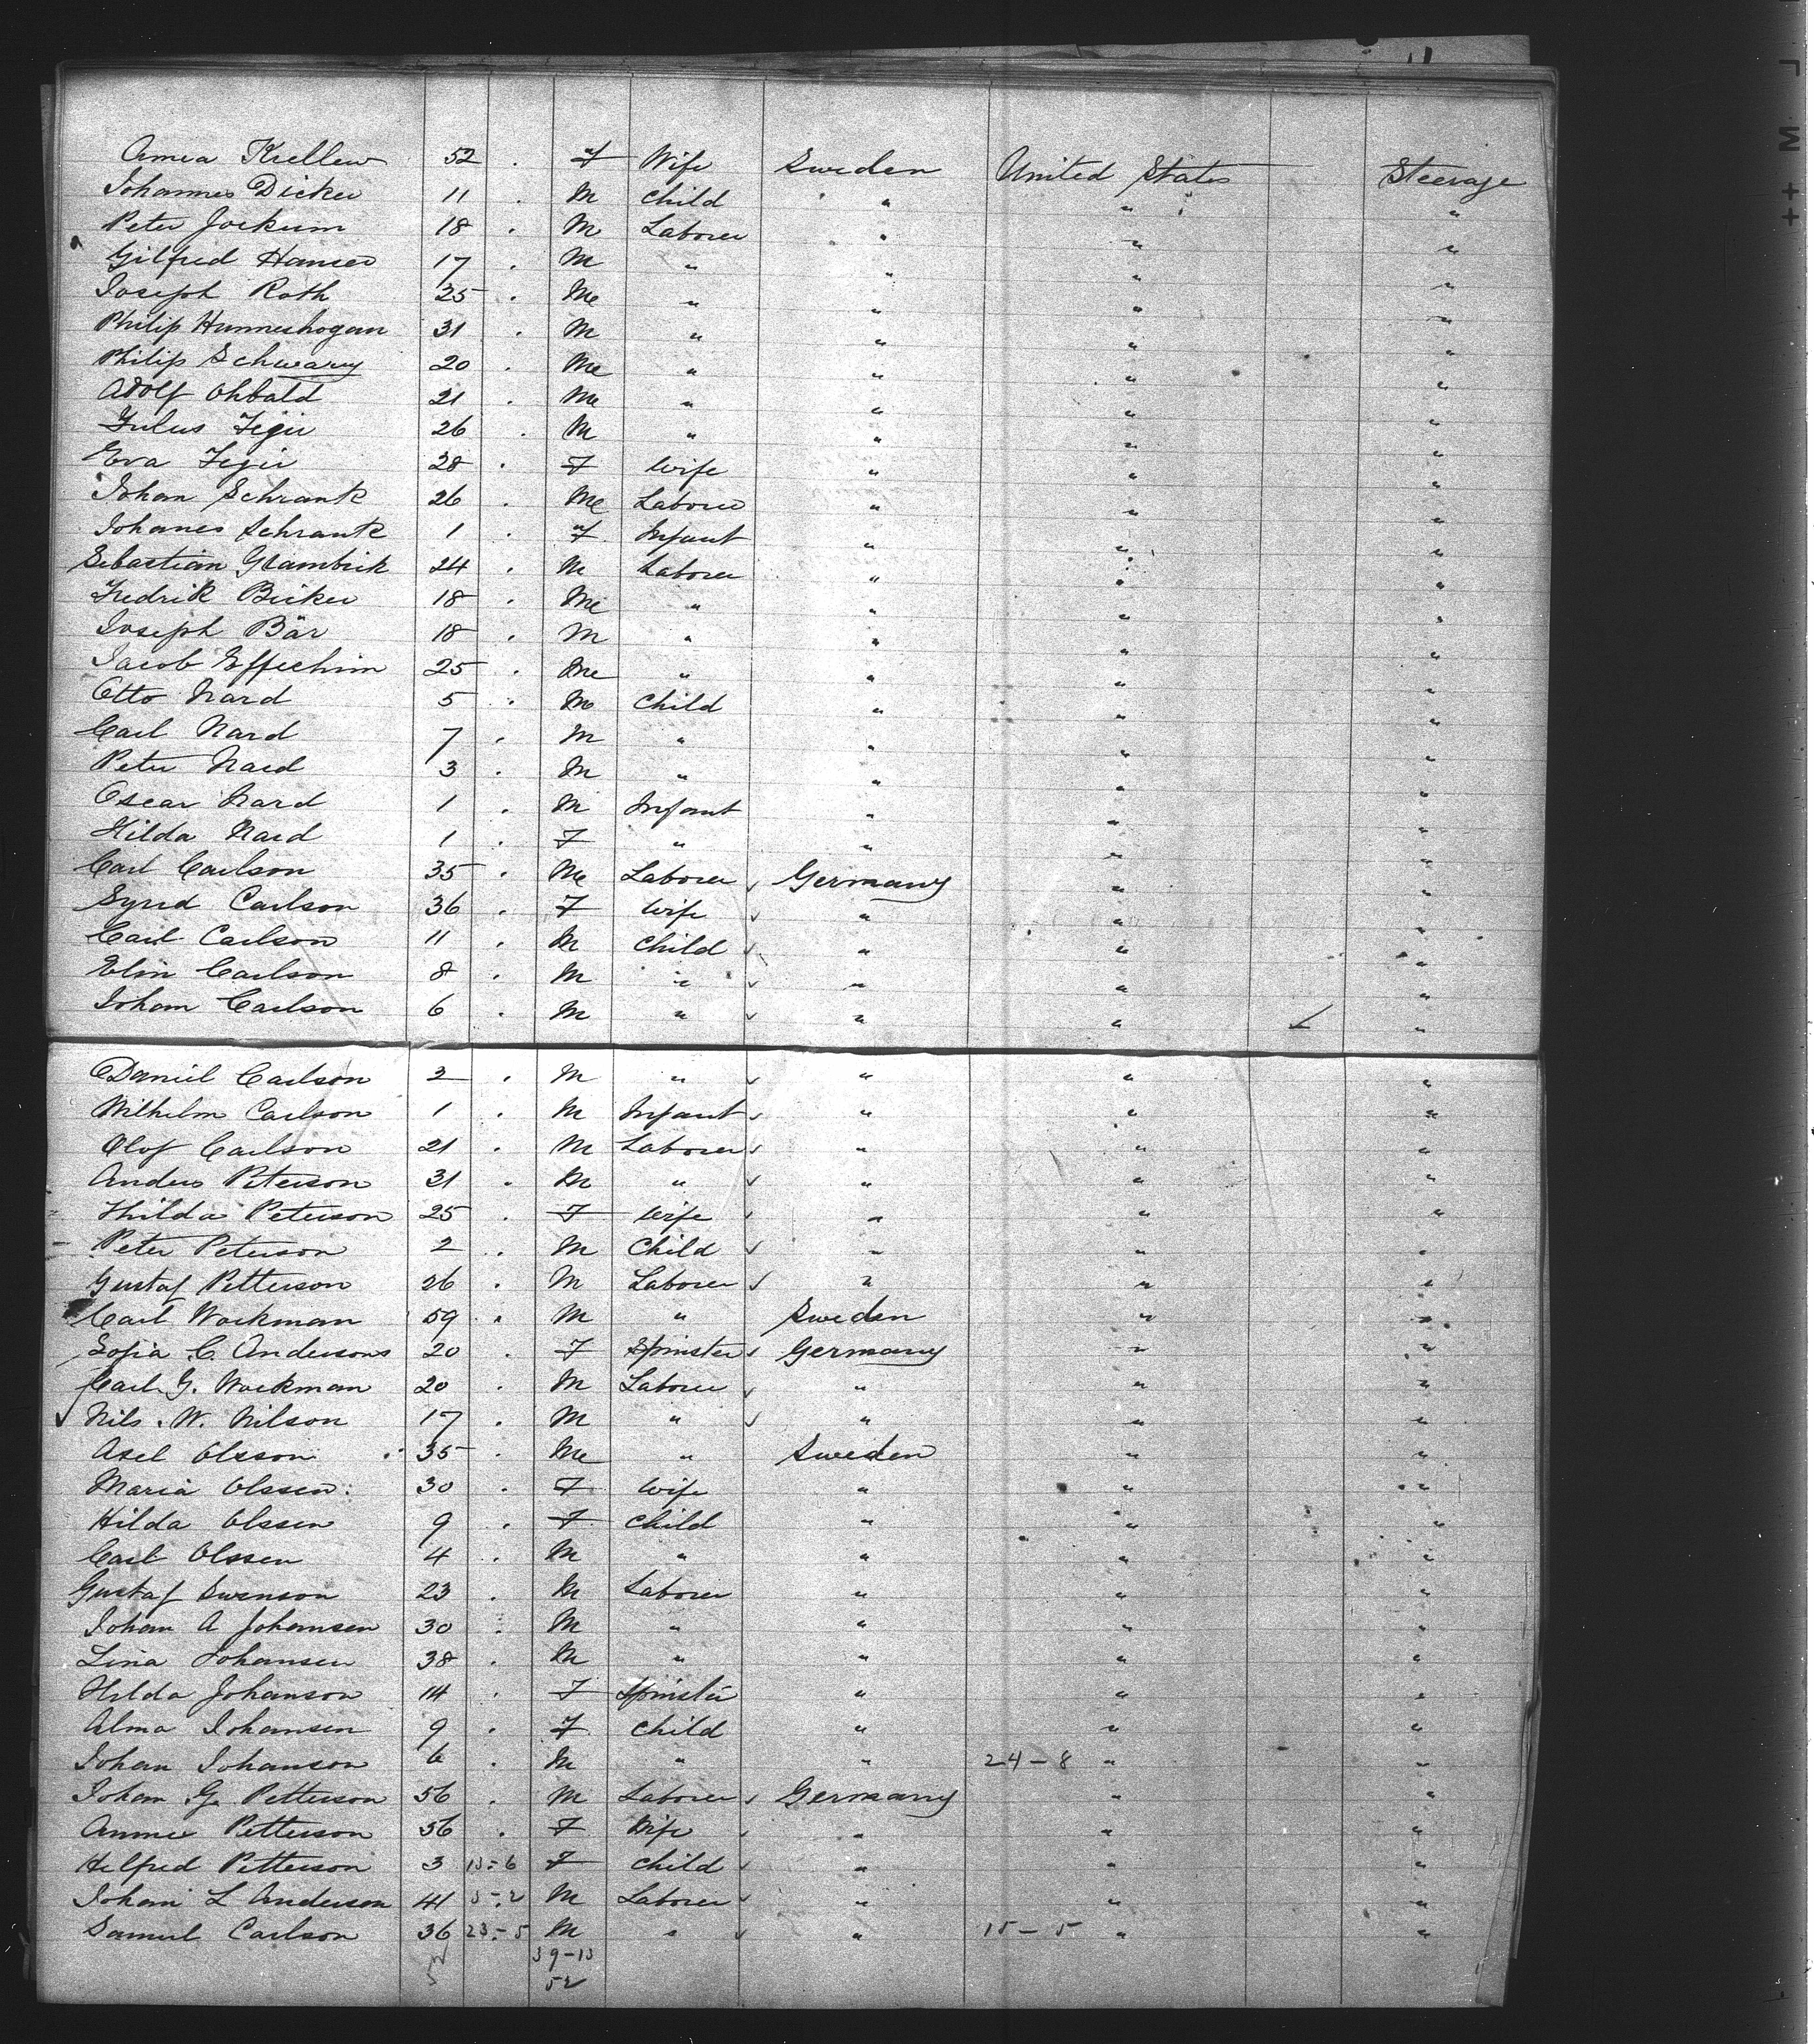 Amea Krellew 52 . F Wife Sweden United States Steerage
Johannes Dicker 11 . M Child " " "
Peter Jockum 18 . M Laborer " " "
Gilfred Hansen 17 . M " " " "
Joseph Roth 25 . M " " " "
Philip Hunneshogan 31 . M " " " "
Philip Schwarz 20 . M " " " "
Adolf Ohbald 21 . M " " " "
Julus Fegir 26 . M " " " "
Eva Fegir 28 . F Wife " " "
Johan Schrank 26 . M Laborer " " "
Johanes Schrank 1 . F Infant " " "
Sebastian Grambrik 24 . M Laborer " " "
Fredrik Bicker 18 . M " " " "
Joseph Bär 18 . M " " " "
Jacob Effechim 25 . M " " " "
Otto Nard 5 . M Child " " "
Carl Nard 7 . M " " " "
Peter Nard 3 . M " " " "
Oscar Nard 1 . M Infant " " "
Hilda Nard 1 . F " " " "
Carl Carlson 35 . M Laborer Germany " "
Syrid Carlson 36 . F Wife " " "
Carl Carlson 11 . M Child " " "
Elin Carlson 8 . M " " " "
Johan Carlson 6 . M " " " "
Daniel Carlson 2 . M " " " "
Wilhelm Carlson 1 . M Infant " " "
Olof Carlson 21 . M Laborer " " "
Anders Peterson 31 . M " " " "
Hilda Peterson 25 . F Wife " " "
Peter Peterson 2 . M Child " " "
Gustaf Petterson 26 . M Laborer " " "
Carl Workman 59 . M " Sweden " "
Sofia C. Andersons 20 . F Spinster Germany " "
Carl G. Workman 20 . M Laborer " " "
Nils . W. Nilson 17 . M " " " "
Axel Olsson 35 . M " Sweden " "
Maria Olssen 30 . F Wife " " "
Hilda Olssen 9 . F Child " " "
Carl Olssen 4 . M " " " "
Gustaf Swenson 23 . M Laborer " " "
Johan A Johansen 30 . M " " " "
Lina Johansen 38 . M " " " "
Hilda Johanson 14 . F Spinster " " "
Alma Johansen 9 . F Child " " "
Johan Johanson 6 . M " " 24-8 " "
Johan G. Petterson 56 . M Laborer Germany " "
Annie Petterson 56 . F Wife " " "
Hilfred Petterson 3 13-6 F Child " " "
Johan L Anderson 41 3-2 M Laborer " " "
Samuel Carlson 36 23-5 M " " 15-5 " "
39-13
52